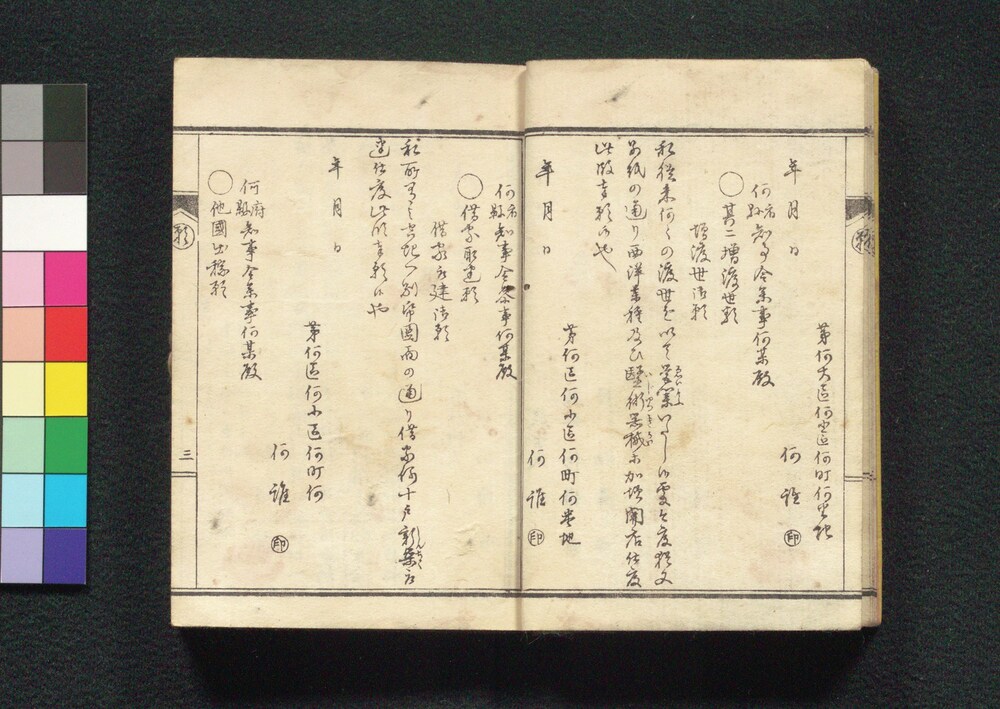 第何大區何小區何町何番地
何誰㊞
年月日
何府縣知事令參事何某殿
○其二增渡世願
增渡世御願
私從來何々の渡世を以て營業いたし候處今度猶又
別紙の通り西洋藥種及ひ醫術器械等加增開店仕度
此段奉願候也
第何區何小區何町何番地
何誰㊞
年月日
何府縣知事令參事何某殿
○借家取建願
借家取建御願
私所有之宅地へ別帋圖面の通り借家何十戶新築取
建仕度此段奉願候也
第何區何小區何町何
何誰㊞
年月日
何府縣知事令參事何某殿
○他國出稼願
願
三